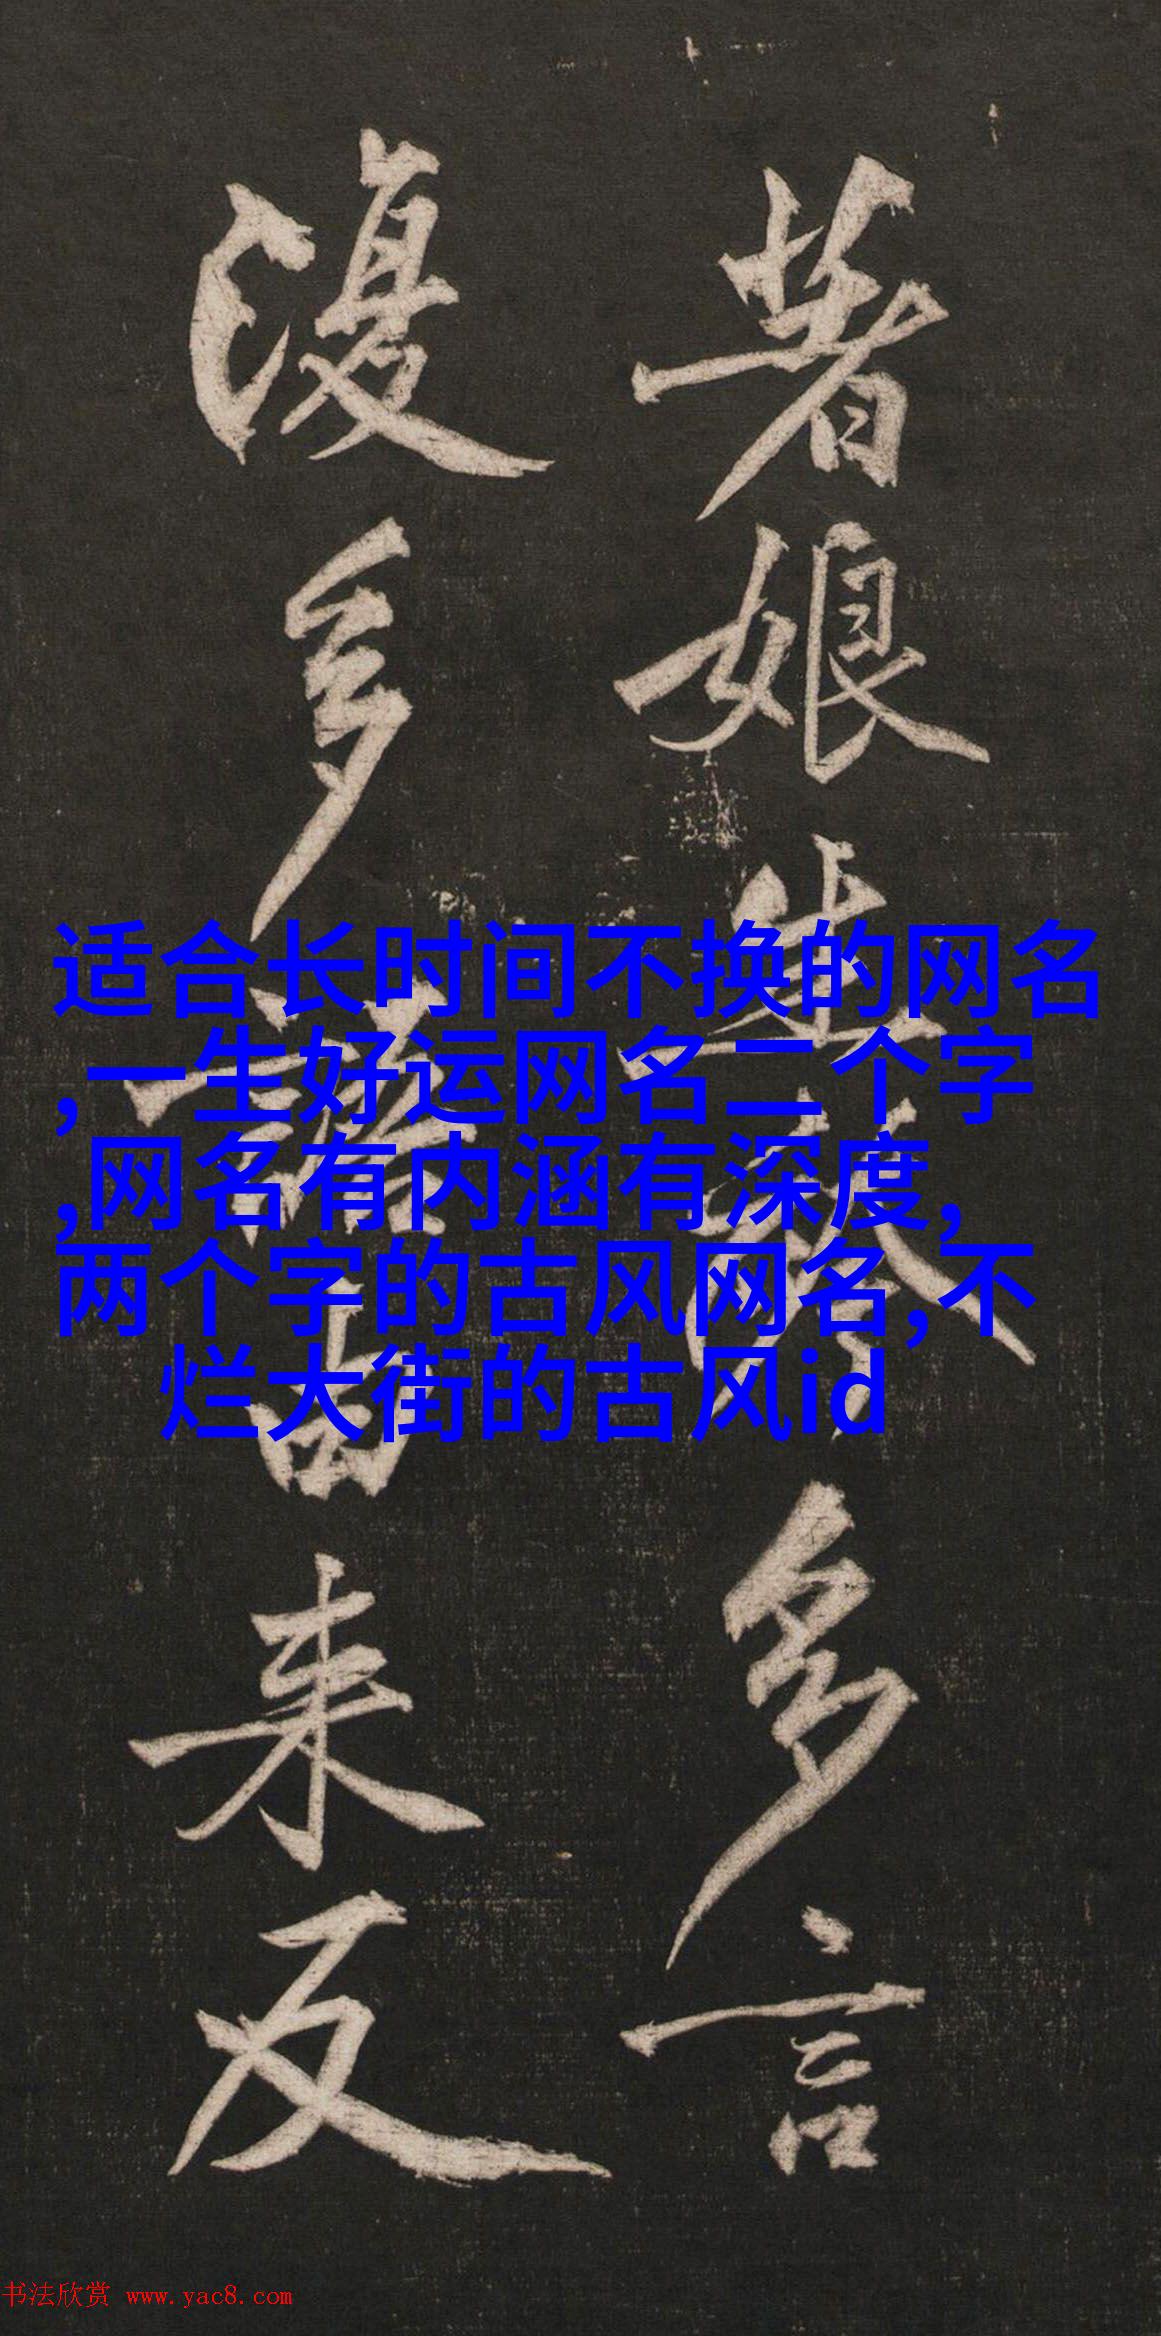 著娘生多言
多語由来反
适合长时间不换的网名
,一生好运网名二个字
,网名有内涵有深度,
两个字的古风网名,不
烂大街的古风id
书法欣赏 www.yac8.com